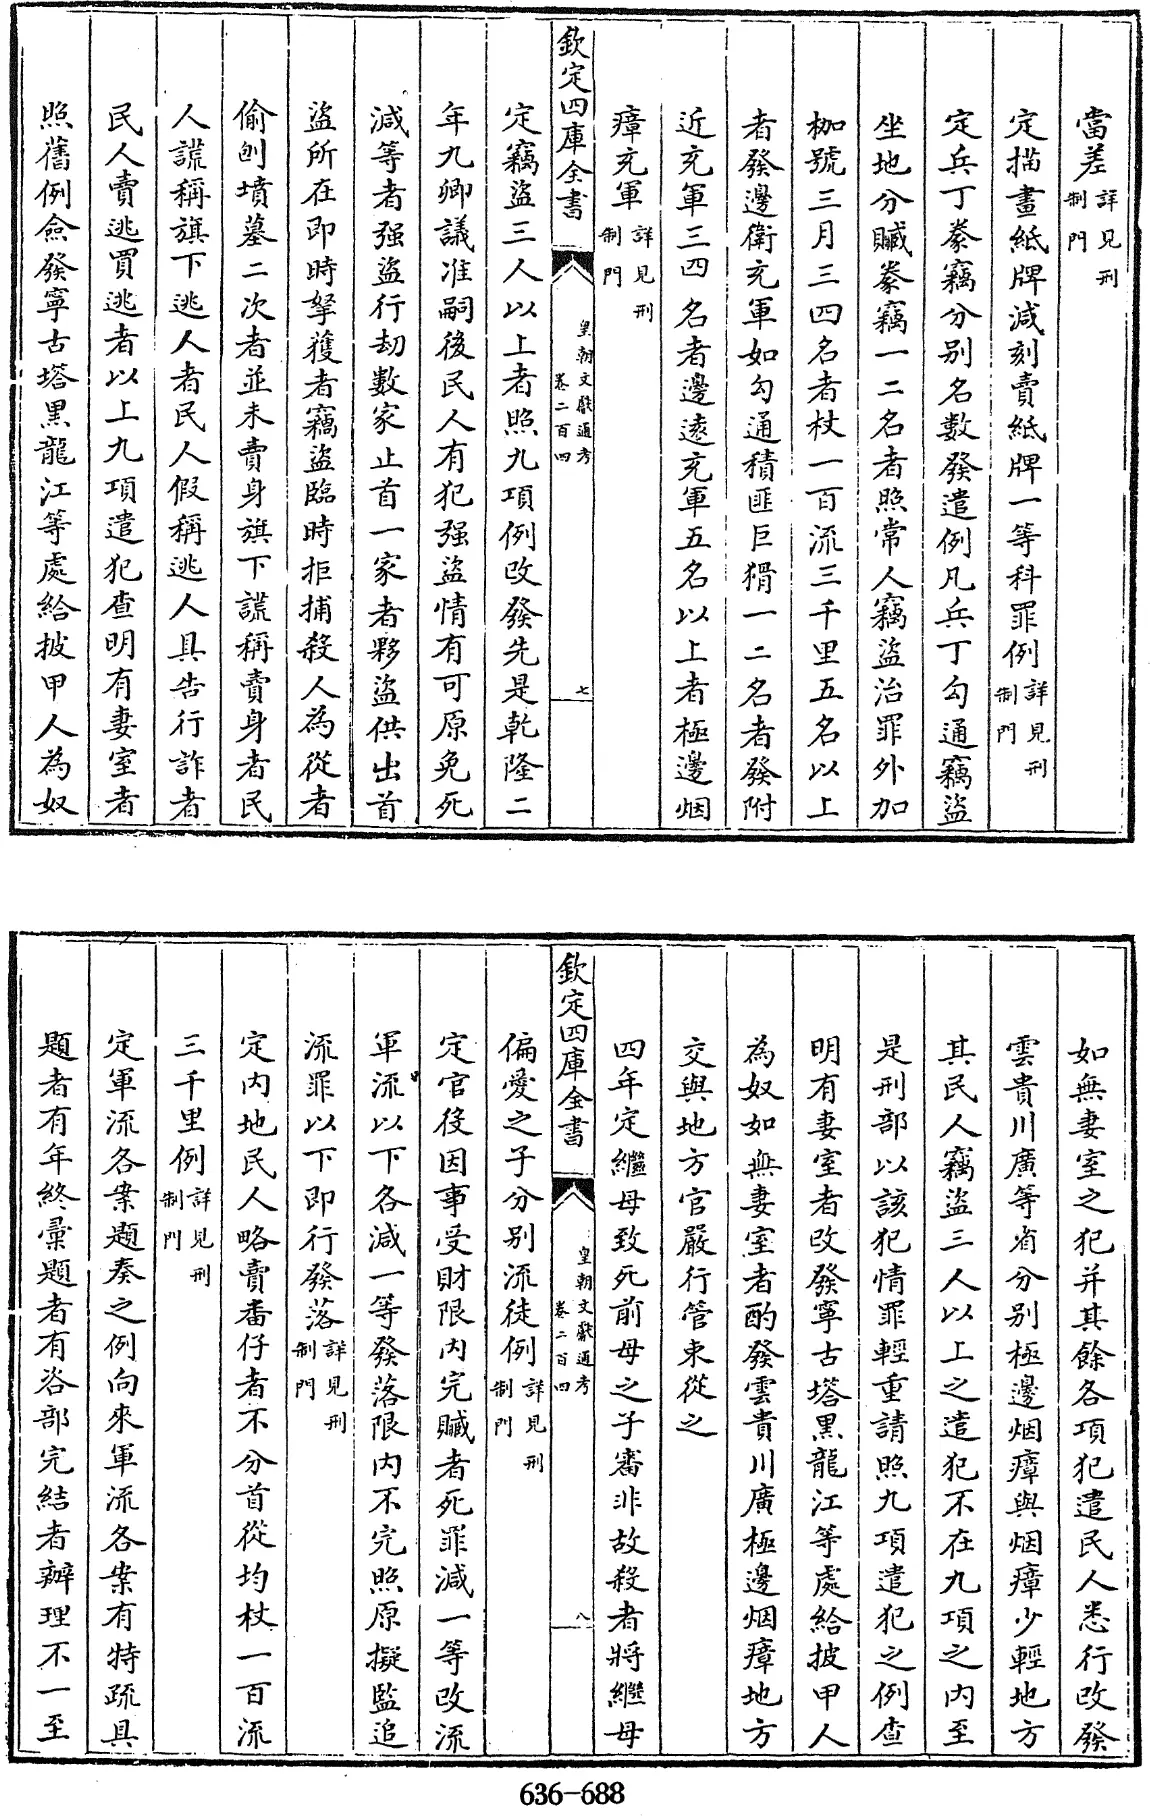 當差詳見刑制門
定描畫紙牌減刻賣紙牌一等科罪例詳見刑制門
定兵丁豢竊分别名數發遣例凡兵丁勾通竊盜
坐地分贓豢竊一二名者照常人竊盜治罪外加
枷號三月三四名者杖一百流三千里五名以上
者發邊衛充軍如勾通積匪巨猾一二名者發附
近充軍三四名者邊逺充軍五名以上者極邊烟
瘴充軍詳見刑制門
欽定四庫全書 皇朝文獻通考卷二百四 七
定竊盜三人以上者照九項例改發先是乾隆二
年九卿議准嗣後民人有犯强盜情有可原免死
減等者强盜行刼數家止首一家者夥盜供出首
盜所在即時拏獲者竊盜臨時拒捕殺人為從者
偷刨墳墓二次者並未賣身旗下謊稱賣身者民
人謊稱旗下逃人者民人假稱逃人具告行詐者
民人賣逃買逃者以上九項遣犯查明有妻室者
照舊例僉發寧古塔黑龍江等處給披甲人為奴
如無妻室之犯并其餘各項犯遣民人悉行改發
雲貴川廣等省分别極邊烟瘴與烟瘴少輕地方
其民人竊盜三人以上之遣犯不在九項之内至
是刑部以該犯情罪輕重請照九項遣犯之例查
明有妻室者改發寧古塔黑龍江等處給披甲人
為奴如無妻室者酌發雲貴川廣極邊烟瘴地方
交與地方官嚴行管束從之
四年定繼母致死前母之子審非故殺者將繼母
欽定四庫全書 皇朝文獻通考卷二百四 八
偏愛之子分别流徒例詳見刑制門
定官役因事受財限内完贓者死罪減一等改流
軍流以下各減一等發落限内不完照原擬監追
流罪以下即行發落詳見刑制門
定内地民人略賣番仔者不分首從均杖一百流
三千里例詳見刑制門
定軍流各案題奏之例向來軍流各案有特疏具
題者有年終彙題者有咨部完結者辦理不一至
636-688